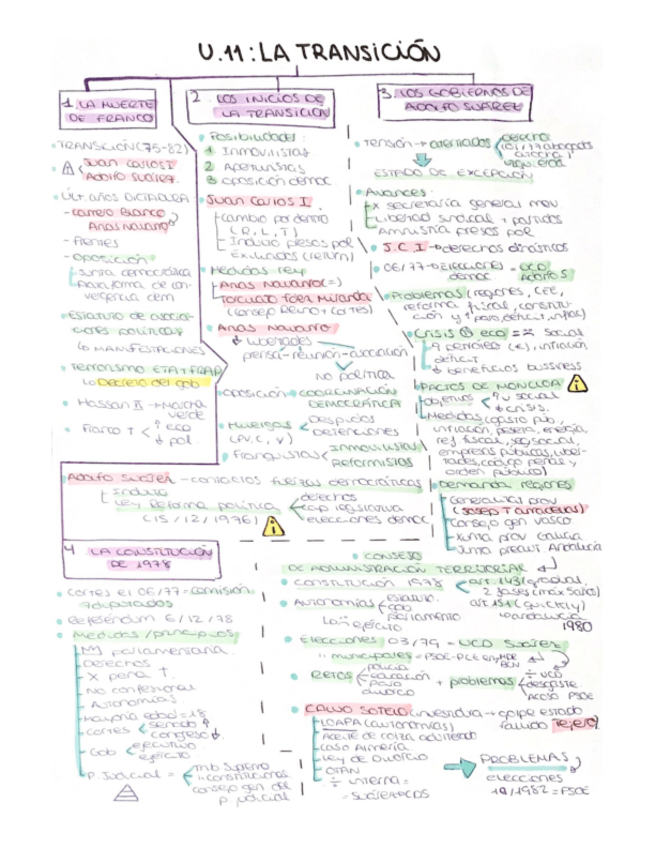 U.11: LA TRANSICIÓN
1. LA MUERTE
DE FRANCO
TRANSICIÓN (75-82)
Juan Carlos I
Adolfo Suárez.
ÚLT. años DICTADURA
- Carrero Blanco
Arias Navarro
- Frentes
- OPOSICIÓN
Junta democrática
Plataforma de con-
vergencia dem
Estatuto de asocia-
ciones políticas
↳ MANIFESTACIONES
Terrorismo ETA + FRAP
↳ Decreto del gob
Hassan II → Marcha
verde
Franco † < ? eco
↓ pol.
2. LOS INICIOS DE
LA TRANSICIÓN
Posibilidades:
1 Inmovilistas
2 Aperturistas
3 oposición democ.
Juan Carlos I.
cambio por dentro
(R, L, T)
Indulto presos pol
Exiliados (return)
Medidas rey
Arias Navarro (=)
Torcuato Fdez Miranda
(consejo Reino + Cortes)
Arias Navarro
↓ libertades
prensa - reunión - asociación
NO política
oposición → COORDINACIÓN
DEMOCRÁTICA
Huelgas < Despidos
(PV, C, V) Detenciones
Franquistas < Inmovilistas
Reformistas
Adolfo Suárez - contactos fuerzas democráticas
Indulto
Ley Reforma política < derechos
cap legislativa
(15/12/1976) elecciones democ
3. LOS GOBIERNOS DE
ADOLFO SUÁREZ
Tensión → atentados < derecha
izquierda
ESTADO DE EXCEPCIÓN
Avances
X secretaría general mov
Libertad sindical + partidos
Amnistía presos pol
J.C.I → derechos dinásticos
06/77 → Elecciones democ = UCD
Adolfo S
Problemas (regiones, CEE,
reforma fiscal, constitu-
ción y ↑ paro, déficit, inflac)
Crisis eco = social
↑ petróleo (€), inflación
déficit
↓ beneficios bussiness
PACTOS DE MONCLOA
objetivos < social
↓ crisis.
Medidas (gasto púb,
inflación, peseta, energía,
ref fiscal, seg social,
empresas públicas, liber-
tades, código penal y
orden público)
Demanda regiones
Generalitat prov
(Josep Tarradellas)
consejo gen vasco
Xunta prov Galicia
Junta preaut Andalucía
4 LA CONSTITUCIÓN
DE 1978
Cortes el 06/77 = comisión
7 diputados
Referéndum 6/12/78
Medidas / principios
M parlamentaria
Derechos
X pena †
No confesional
Autonomías
Mayoría edad = 18
Cortes < senado
congreso
Gob < ejecutivo
ejército
P. Judicial = Trib Supremo
" constitucional
consejo gen del
p. judicial
CONSEJO
DE ADMINISTRACIÓN TERRITORIAL
CONSTITUCIÓN 1978 < art. 143 (gradual,
2 fases (máx 5 años)
art 151
↳ Andalucía
1980
Autonomías < estatuto
gob
parlamento
↳ ejército
Elecciones 03/79 = UCD Suárez
" municipales = PSOE-PCE
RETOS < policía
educación
paro
divorcio
+ problemas < ÷ UCD
desgaste
Acoso PSOE
CALVO SOTELO investidura → golpe estado
fallido Tejero
LOAPA (autonomías)
Aceite de colza adulterado
Caso Almería
Ley de Divorcio
OTAN
÷ interna =
Suárez → CDS
PROBLEMAS
elecciones
10/1982 = PSOE